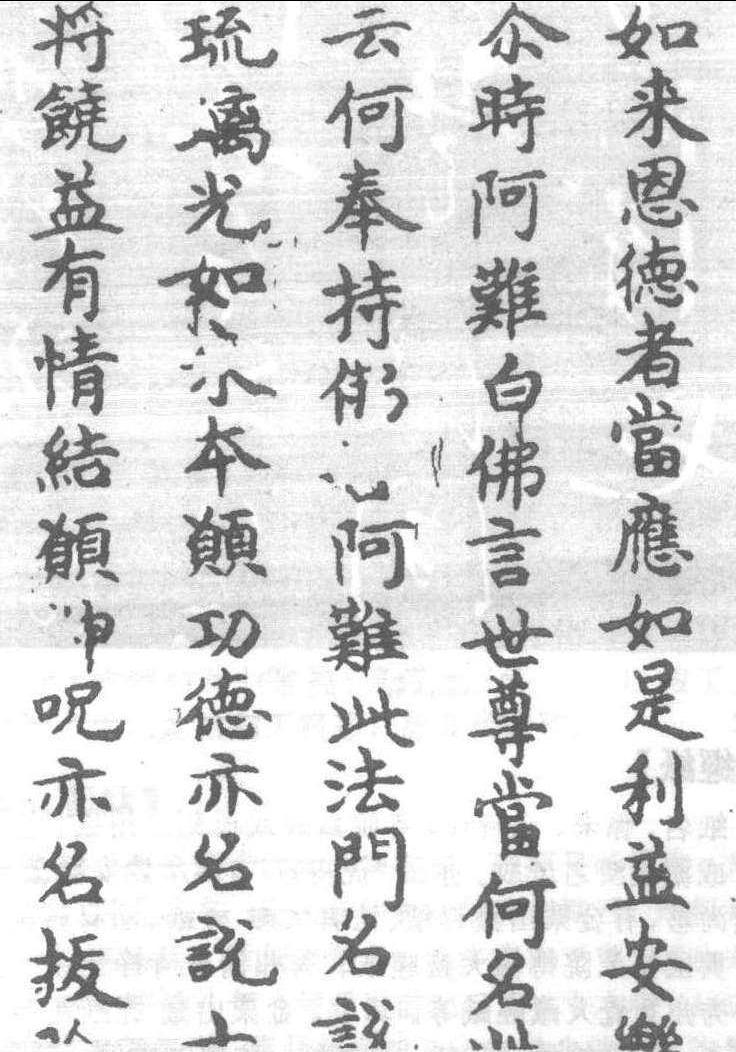 如来恩德者當應如是利益安樂
尒時阿難白佛言世尊當何名
云何奉持佛阿難此法門名說
琉璃光如来本願功德亦名說
将饒益有情結願神呪亦名拔